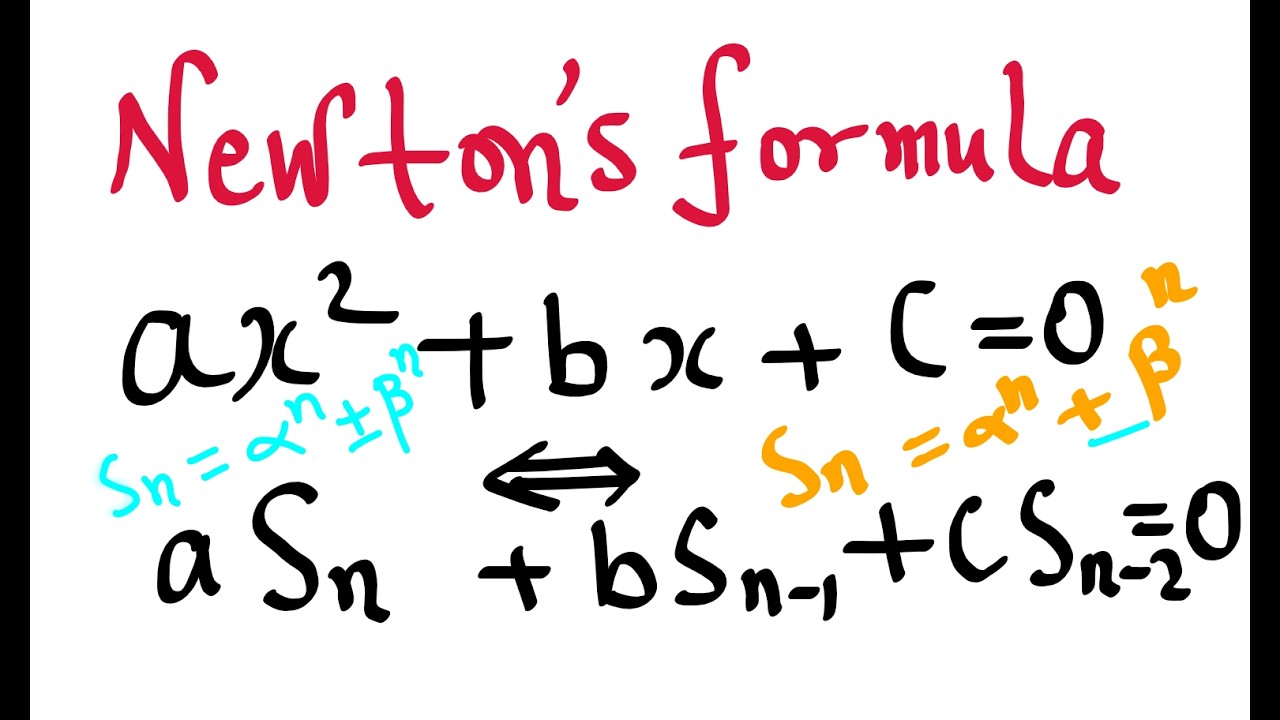 Newton's formula
ax² + bx + c = 0
Sn = αⁿ ± βⁿ
Sn = αⁿ ± βⁿ
⇔
a Sn + b Sn-1 + c Sn-2 = 0